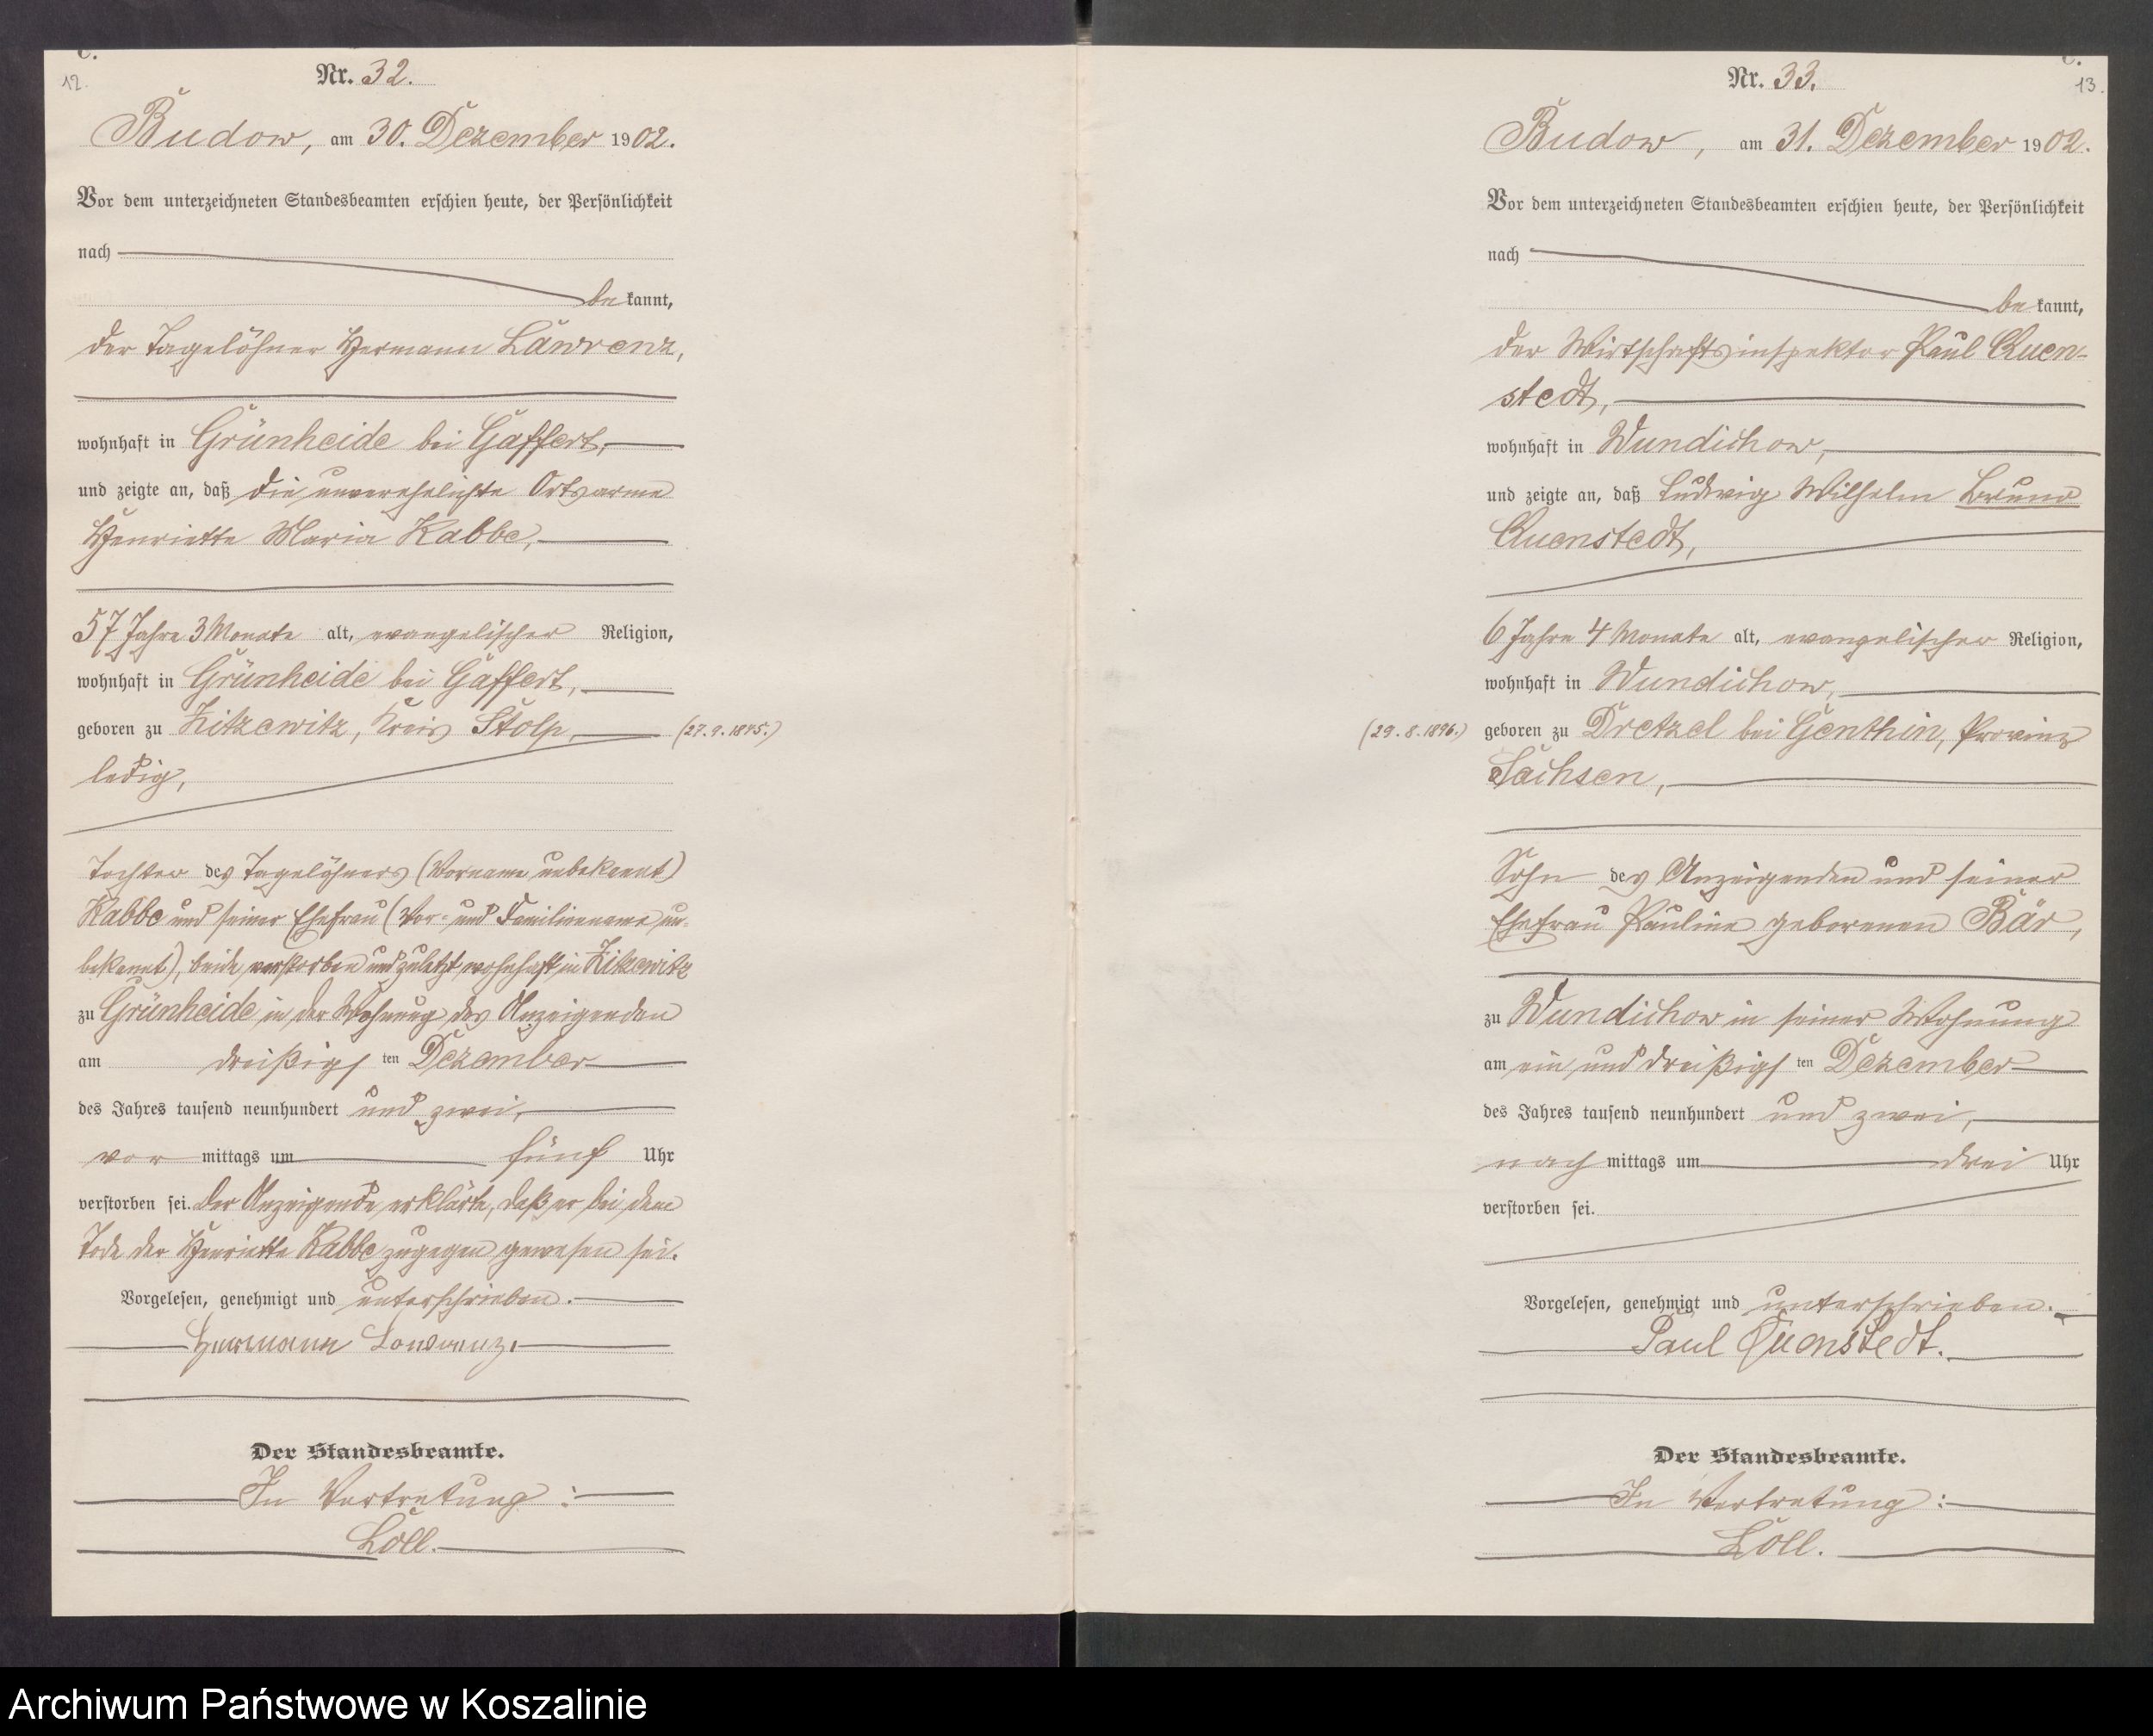 C.
12.
Nr. 32.
Budow, am 30. Dezember 1902.
Vor dem unterzeichneten Standesbeamten erschien heute, der Persönlichkeit
nach
bekannt,
der Tagelöhner Hermann Lawrenz,
wohnhaft in Grünheide bei Gaffert,
und zeigte an, daß die unverehelichte Ortsarme
Henriette Maria Kabbe,
57 Jahre 3 Monate alt, evangelischer Religion,
wohnhaft in Grünheide bei Gaffert,
geboren zu Zitzewitz, Kreis Stolp, (27.9.1845.)
ledig,
Tochter des Tagelöhners (Vorname unbekannt)
Kabbe und seiner Ehefrau (Vor- und Familienname un-
bekannt), beide verstorben und zuletzt wohnhaft in Zitzewitz
zu Grünheide in der Wohnung des Anzeigenden
am dreißigsten Dezember
des Jahres tausend neunhundert und zwei,
vormittags um fünf Uhr
verstorben sei. Der Anzeigende erklärte, daß er bei dem
Tode der Henriette Kabbe zugegen gewesen sei.
Vorgelesen, genehmigt und unterschrieben.
Hermann Lawrenz.
Der Standesbeamte.
In Vertretung:
Löll.
C.
13.
Nr. 33.
Budow, am 31. Dezember 1902.
Vor dem unterzeichneten Standesbeamten erschien heute, der Persönlichkeit
nach
bekannt,
der Wirtschaftsinspektor Paul Quen-
stedt,
wohnhaft in Wundichow,
und zeigte an, daß Ludwig Wilhelm Bruno
Quenstedt,
6 Jahre 4 Monate alt, evangelischer Religion,
wohnhaft in Wundichow,
(29.8.1896.) geboren zu Dretzel bei Genthin, Provinz
Sachsen,
Sohn des Anzeigenden und seiner
Ehefrau Pauline geborenen Bär,
zu Wundichow in seiner Wohnung
am ein und dreißigsten Dezember
des Jahres tausend neunhundert und zwei,
nachmittags um drei Uhr
verstorben sei.
Vorgelesen, genehmigt und unterschrieben.
Paul Quenstedt.
Der Standesbeamte.
In Vertretung:
Löll.
Archiwum Państwowe w Koszalinie